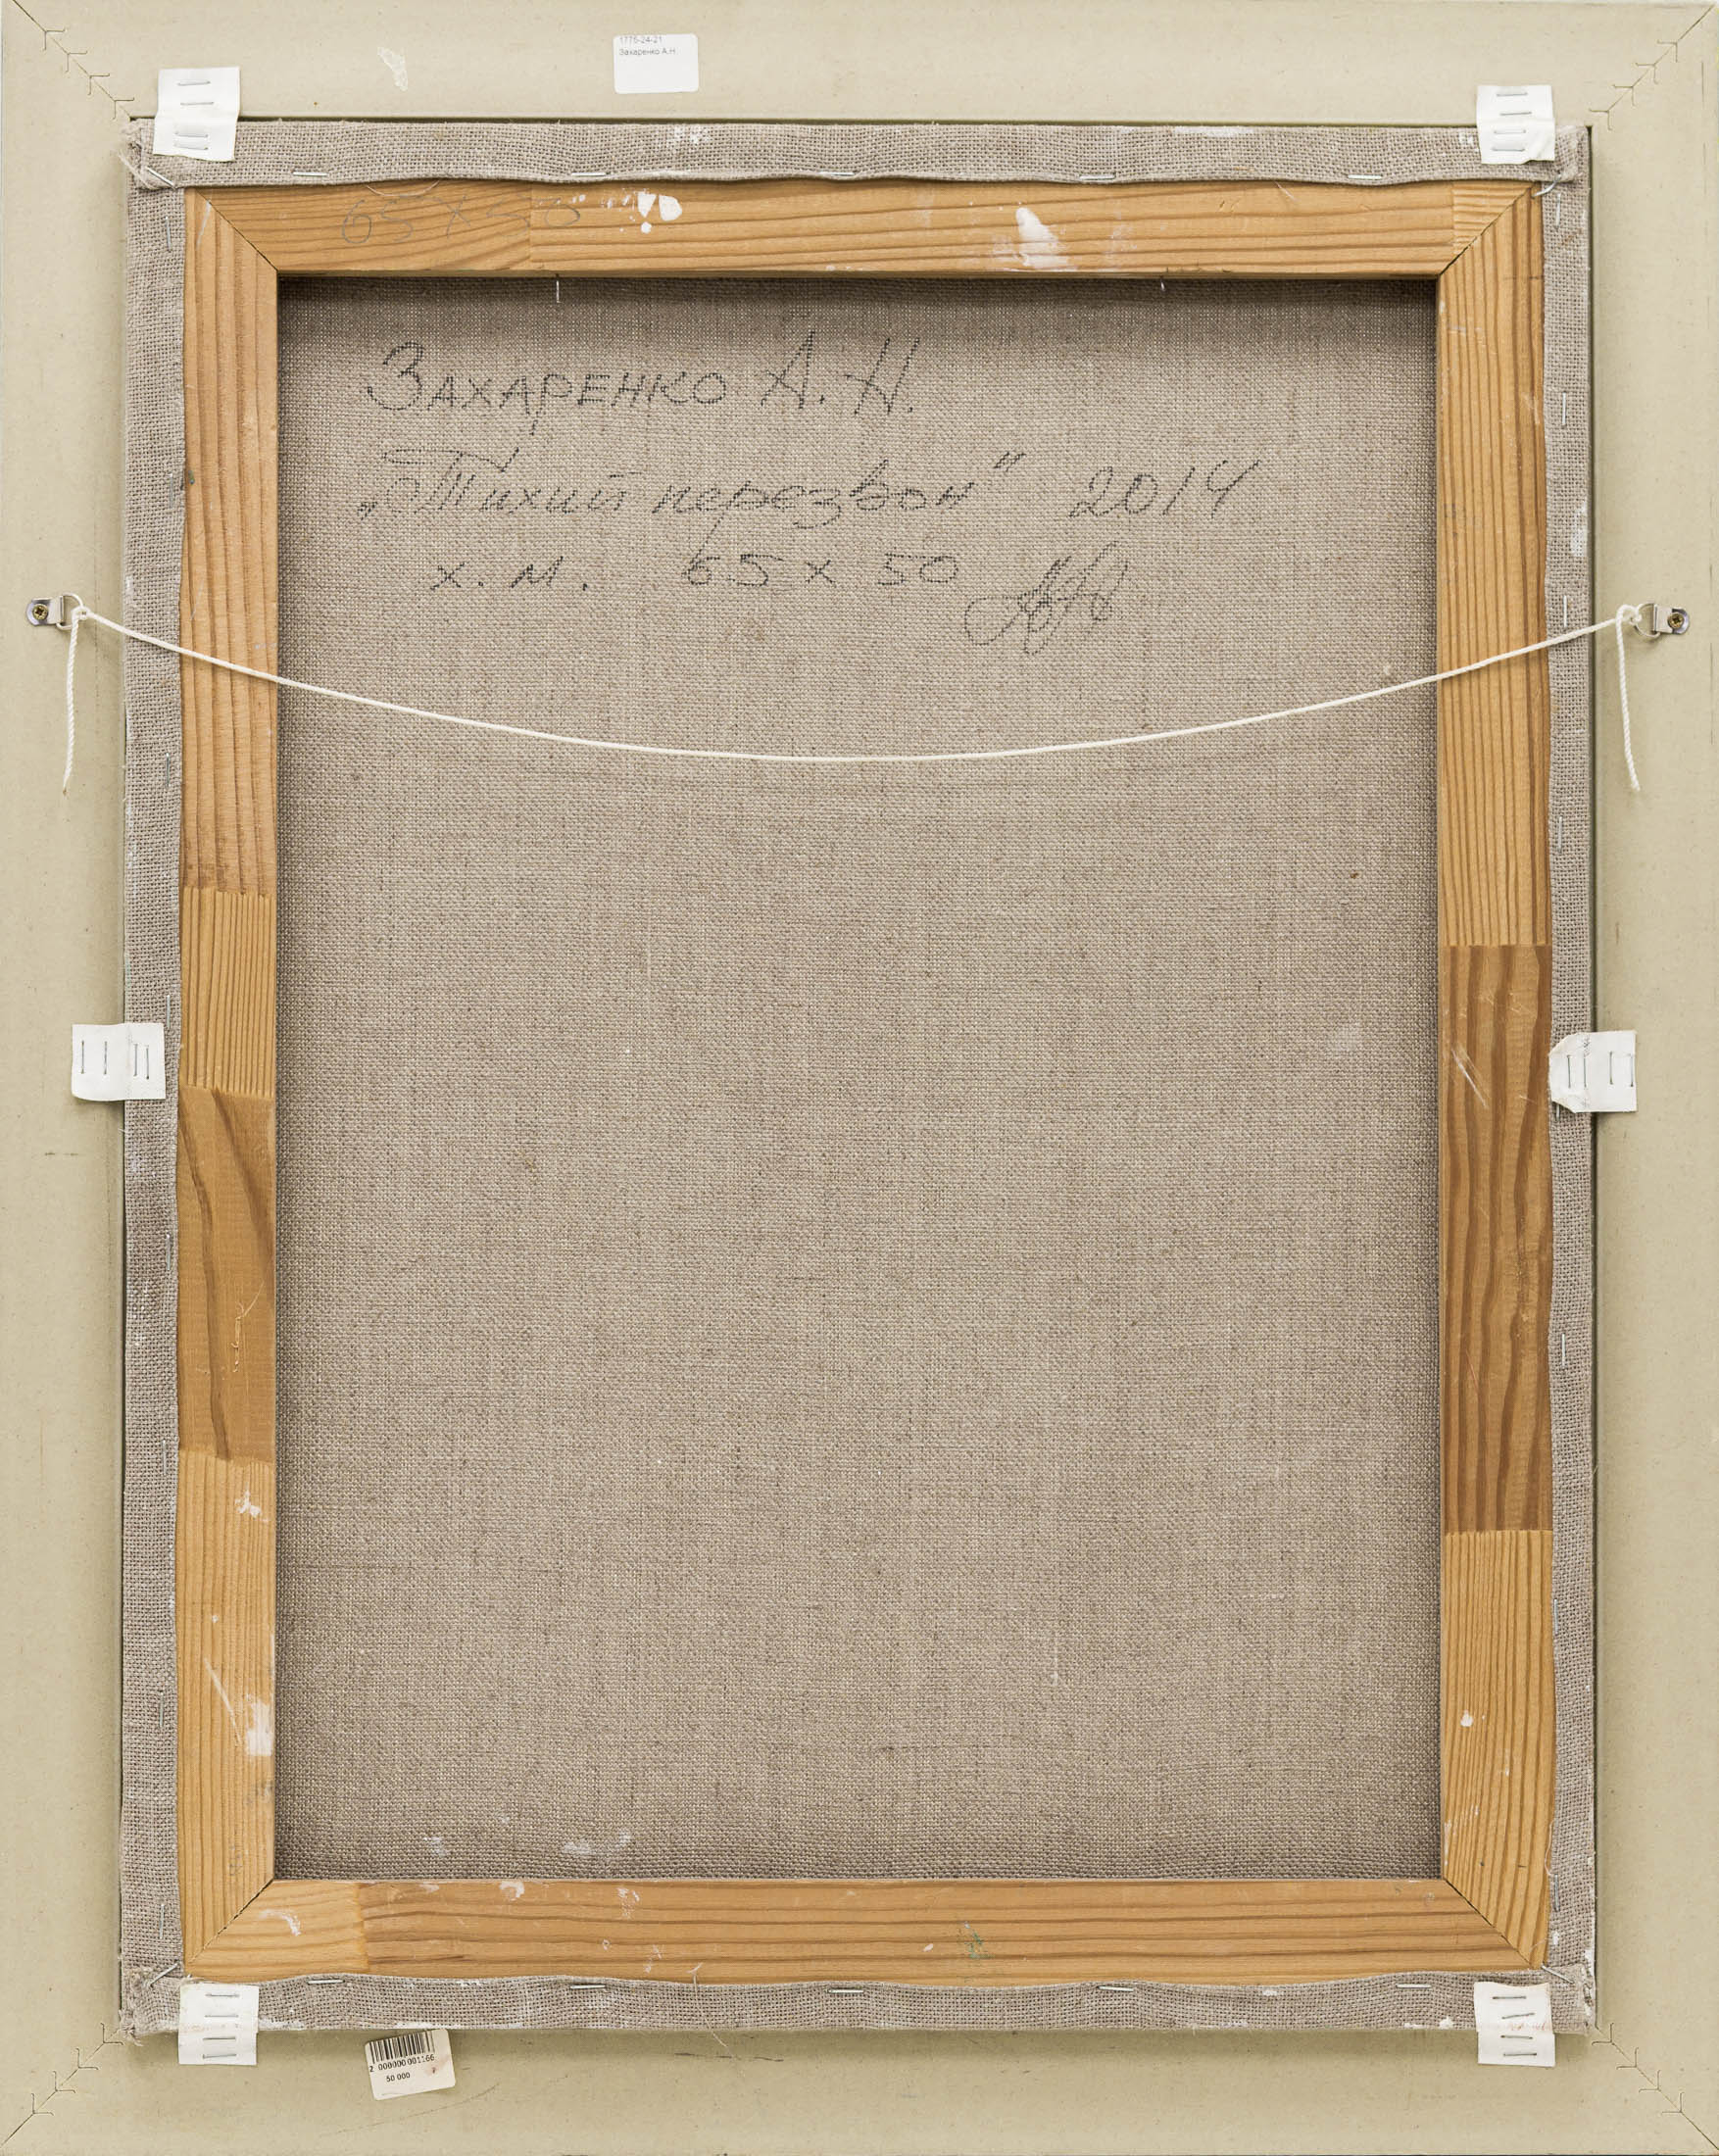 1776-24-21
Захаренко А.Н.
65 х 50
Захаренко А. Н.
„Тихий перезвон" 2014
х. м. 65 х 50
2 000000 001166
50 000